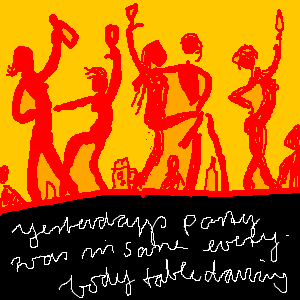 yesterdays party
was in sane every-
body table dancing